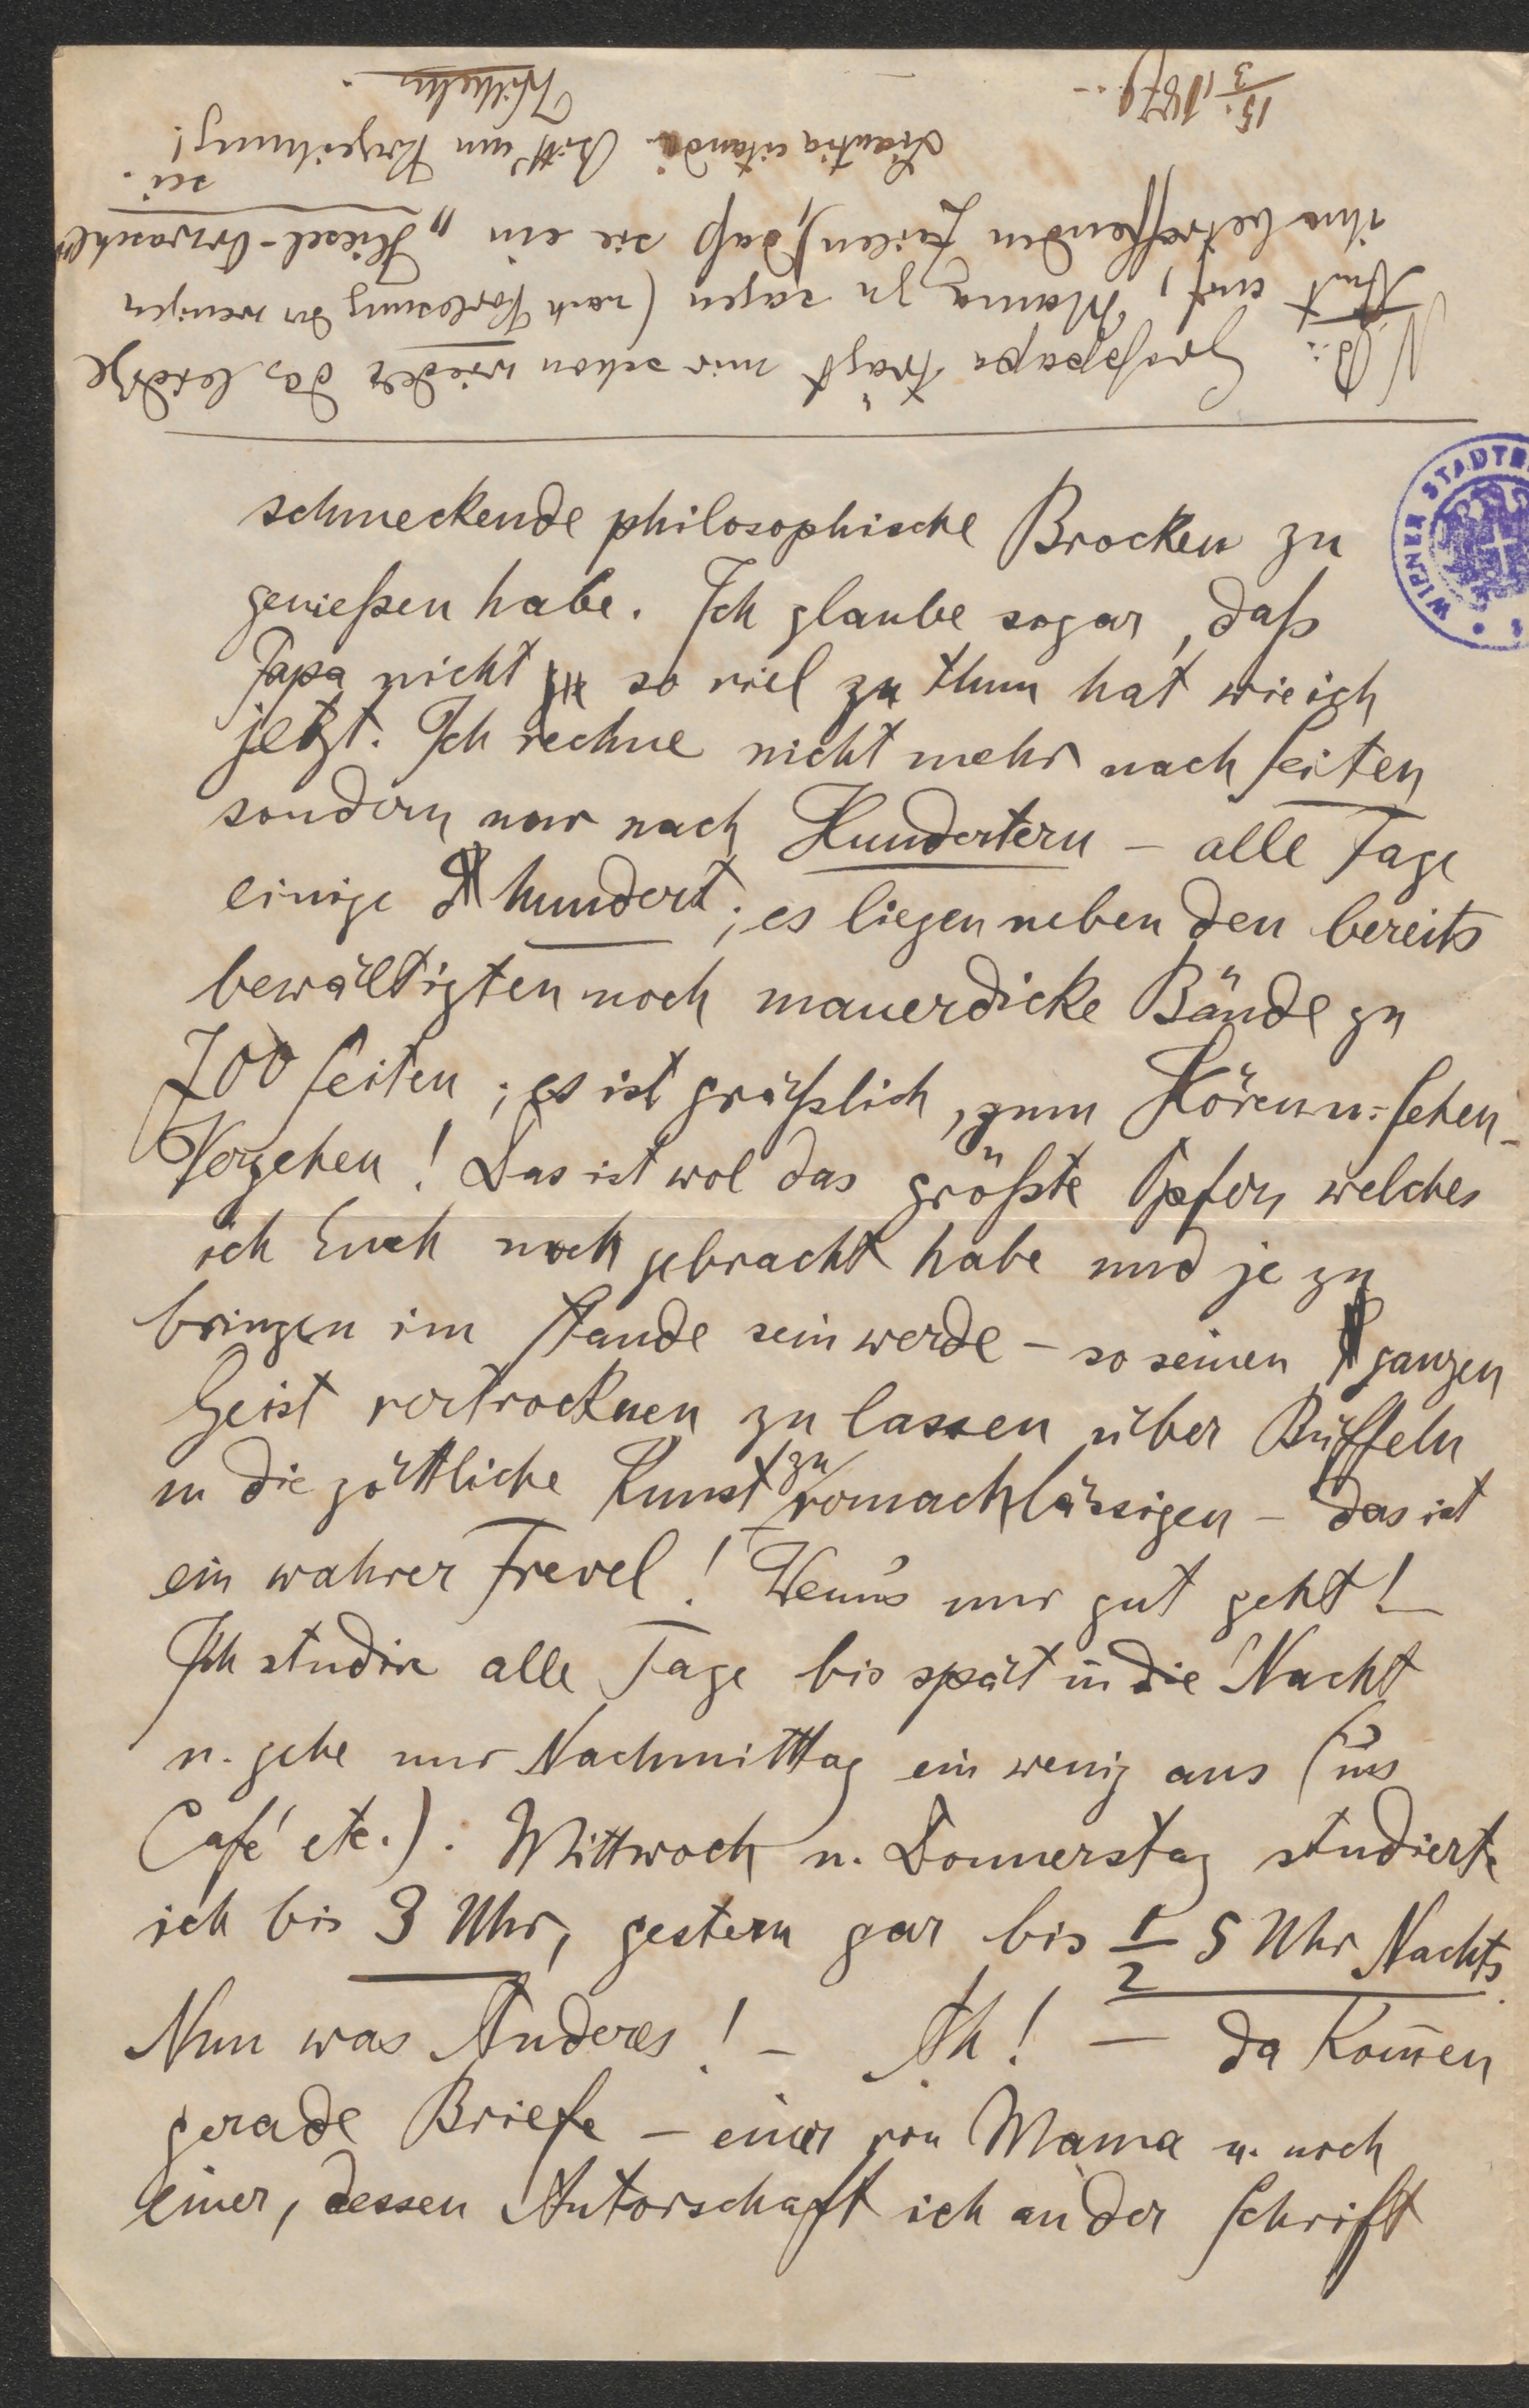 schmeckende philosophische Brocken zu
genießen habe. Ich glaube sogar, daß
Papa nicht so viel zu thun hat wie ich
jetzt. Ich rechne nicht mehr nach Seiten
sondern nur nach Hundertern – alle Tage
einige hundert; es liegen neben den bereits
bewältigten noch mauerdicke Bände zu
700 Seiten; es ist gräßlich, zum Hören u: Sehen-
Vergehen! Das ist wol das größte Opfer, welches
ich Euch noch gebracht habe und je zu
bringen im Stande sein werde – so seinen ganzen
Geist vertrocknen zu lassen über Büffeln
u die göttliche Kunst zu vernachlässigen – das ist
ein wahrer Frevel! Wenn's nur gut geht!
Ich studire alle Tage bis spät in die Nacht
u. gehe nur Nachmittag ein wenig aus (ins
Café etc.). Mittwoch u. Donnerstag studierte
ich bis 3 Uhr, gestern gar bis 1/2 5 Uhr Nachts.
Nun was Anderes! – Ah! – da kom̄en
gerade Briefe – einer von Mama u. noch
einer, dessen Autorschaft ich an der Schrift
N.B.: Großpapa trägt mir schon wieder das leidige
Amt auf, Mama zu sagen (nach Vorlesung der wenigen
ihn betreffenden Zeilen), daß sie ein „Hiesel-
sei.
Bitt' um Verzeihung!
15./3 1879. –
Wilhelm.
WIENER STADT